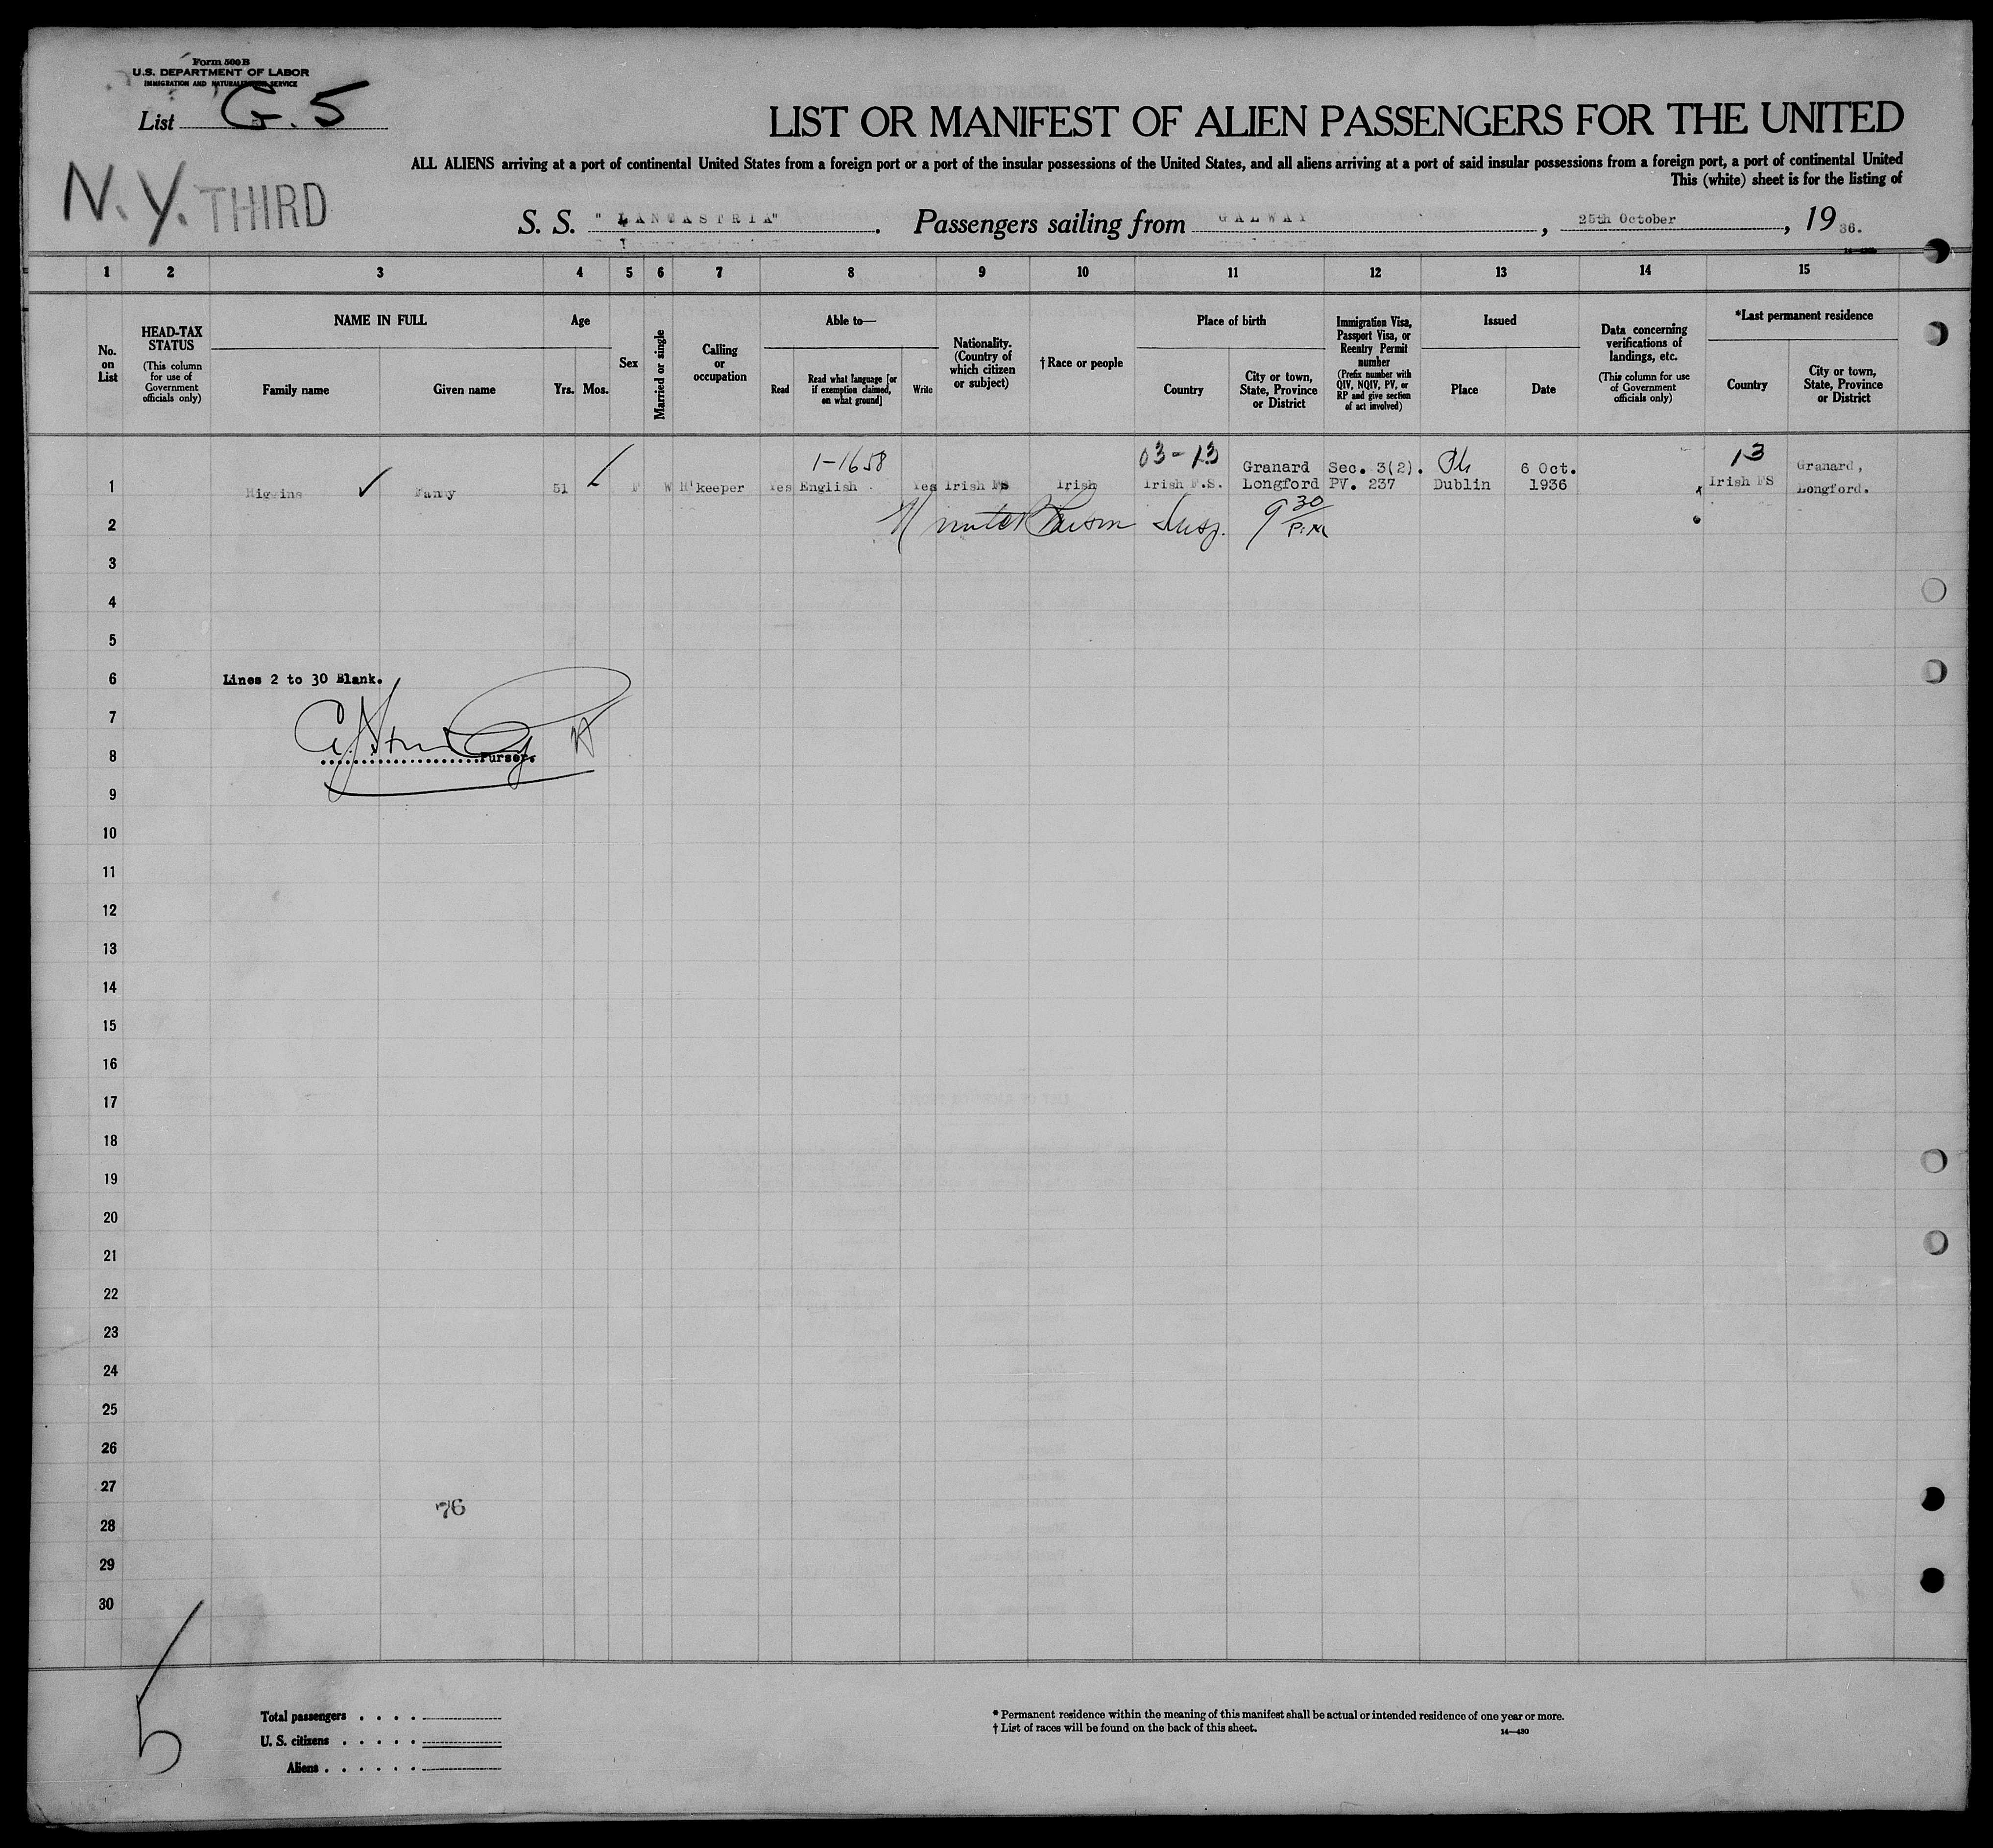 Form 500 B
U.S. DEPARTMENT OF LABOR
IMMIGRATION AND NATURALIZATION SERVICE
List G. 5
N.Y. THIRD
LIST OR MANIFEST OF ALIEN PASSENGERS FOR THE UNITED
ALL ALIENS arriving at a port of continental United States from a foreign port or a port of the insular possessions of the United States, and all aliens arriving at a port of said insular possessions from a foreign port, a port of continental United
This (white) sheet is for the listing of
S. S. "LANCASTRIA". Passengers sailing from GALWAY, 25th October, 1936.
1 2 3 4 5 6 7 8 9 10 11 12 13 14 15
No. on List
HEAD-TAX STATUS (This column for use of Government officials only)
NAME IN FULL
Family name
Given name
Age
Yrs. Mos.
Sex
Married or single
Calling or occupation
Able to—
Read
Read what language [or if exemption claimed, on what ground]
Write
Nationality. (Country of which citizen or subject)
† Race or people
Place of birth
Country
City or town, State, Province or District
Immigration Visa, Passport Visa, or Reentry Permit number (Prefix number with QIV, NQIV, PV, or RP and give section of act involved)
Issued
Place
Date
Data concerning verifications of landings, etc. (This column for use of Government officials only)
*Last permanent residence
Country
City or town, State, Province or District
1-1658 03-13 13
Granard Sec. 3(2). 6 Oct. Granard,
1 Higgins ✓ Fanny 51 F W H'keeper Yes English Yes Irish FS Irish Irish F.S. Longford PV. 237 Dublin 1936 Irish FS Longford.
2 9 30 P.M.
3
4
5
6 Lines 2 to 30 Blank.
7
8 Purser.
9
10
11
12
13
14
15
16
17
18
19
20
21
22
23
24
25
26
27
76
28
29
30
5
Total passengers . . . .
U. S. citizens . . . . .
Aliens . . . . . .
* Permanent residence within the meaning of this manifest shall be actual or intended residence of one year or more.
† List of races will be found on the back of this sheet.
14—430